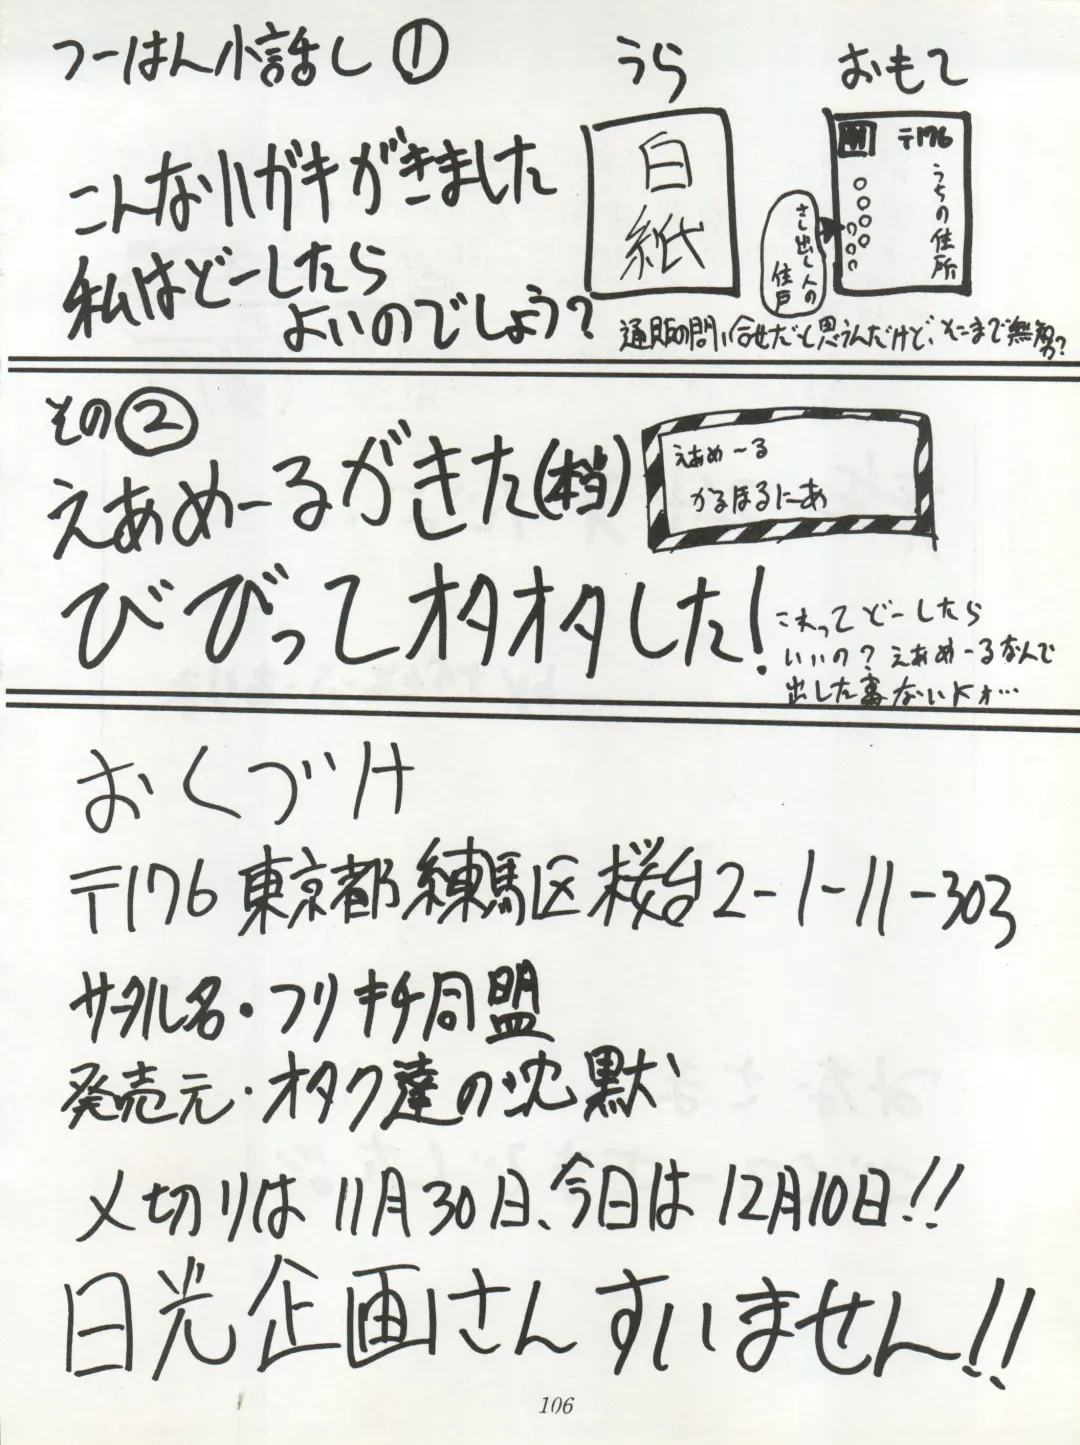 つーはん小話し ①
うら
おもて
こんなハガキがきました
私はどーしたら
よいのでしょう?
白紙
〒176
うちの住所
○○○○○○○
さし出し人の
住戸
通販の問い合せだと思うんだけど、そこまで無努?
その②
えあめーるがきた(本当)
えあめーる
かるほるにあ
びびってオタオタした!
これってどーしたら
いいの? えあめーるなんで
出した事ないよォ…
おくづけ
〒176 東京都練馬区桜台2-1-11-303
サークル名・フリキチ同盟
発売元・オタク達の沈黙
〆切りは11月30日、今日は12月10日!!
日光企画さんすいません!!
106